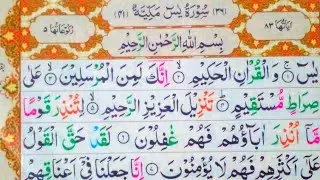 اٰیَاتُهَا ٨٣ (٣٦) سُوْرَةُ یٰسٓ مَكِّیَّةٌ (٤١) رُكُوْعَاتُهَا ٥
بِسْمِ اللّٰهِ الرَّحْمٰنِ الرَّحِیْمِ
یٰسٓ ۝١ وَ الْقُرْاٰنِ الْحَكِیْمِ ۝٢ اِنَّكَ لَمِنَ الْمُرْسَلِیْنَ ۝٣ عَلٰى
صِرَاطٍ مُّسْتَقِیْمٍ ۝٤ تَنْزِیْلَ الْعَزِیْزِ الرَّحِیْمِ ۝٥ لِتُنْذِرَ قَوْمًا
مَّاۤ اُنْذِرَ اٰبَآؤُهُمْ فَهُمْ غٰفِلُوْنَ ۝٦ لَقَدْ حَقَّ الْقَوْلُ
عَلٰۤى اَكْثَرِهِمْ فَهُمْ لَا یُؤْمِنُوْنَ ۝٧ اِنَّا جَعَلْنَا فِیْۤ اَعْنَاقِهِمْ